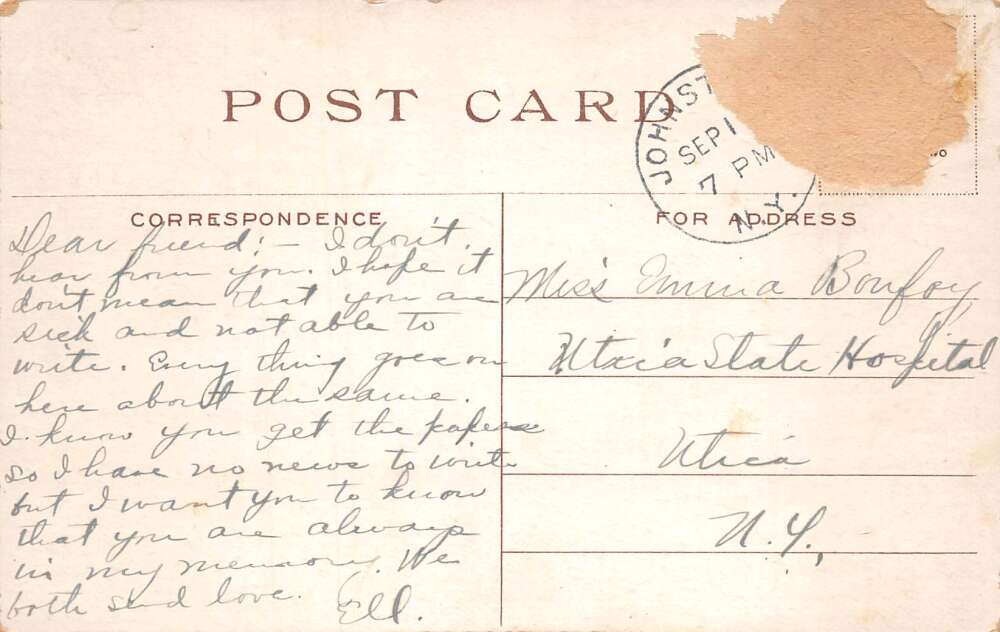 POST CARD
JOHNST
SEP 1
7 PM
N.Y.
CORRESPONDENCE
FOR ADDRESS
Dear friend:— I don't.
hear from you. I hope it
don't mean that you are
sick and not able to
write. Every thing goes on
here about the same.
I know you get the papers
so I have no news to write
but I want you to know
that you are always
in my memory. We
both send love. Ell.
Miss Emma Bonfoy
Utica State Hospital
Utica
N.Y.,